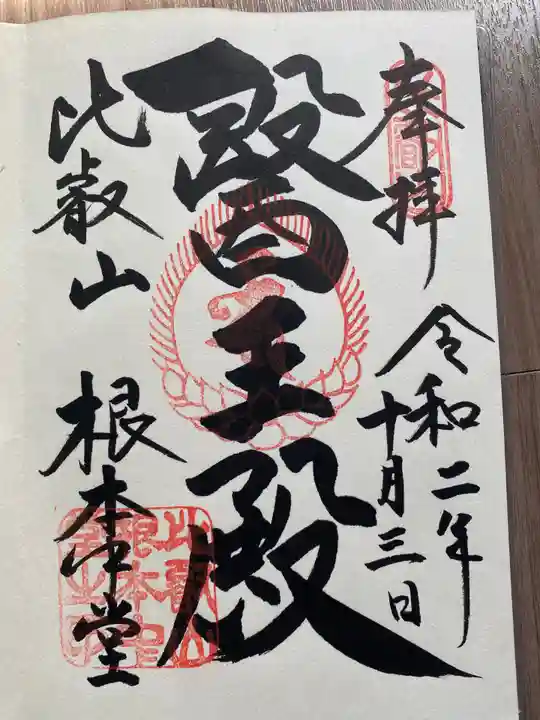 奉拝
令和二年
十月三日
醫王殿
比叡山 根本中堂